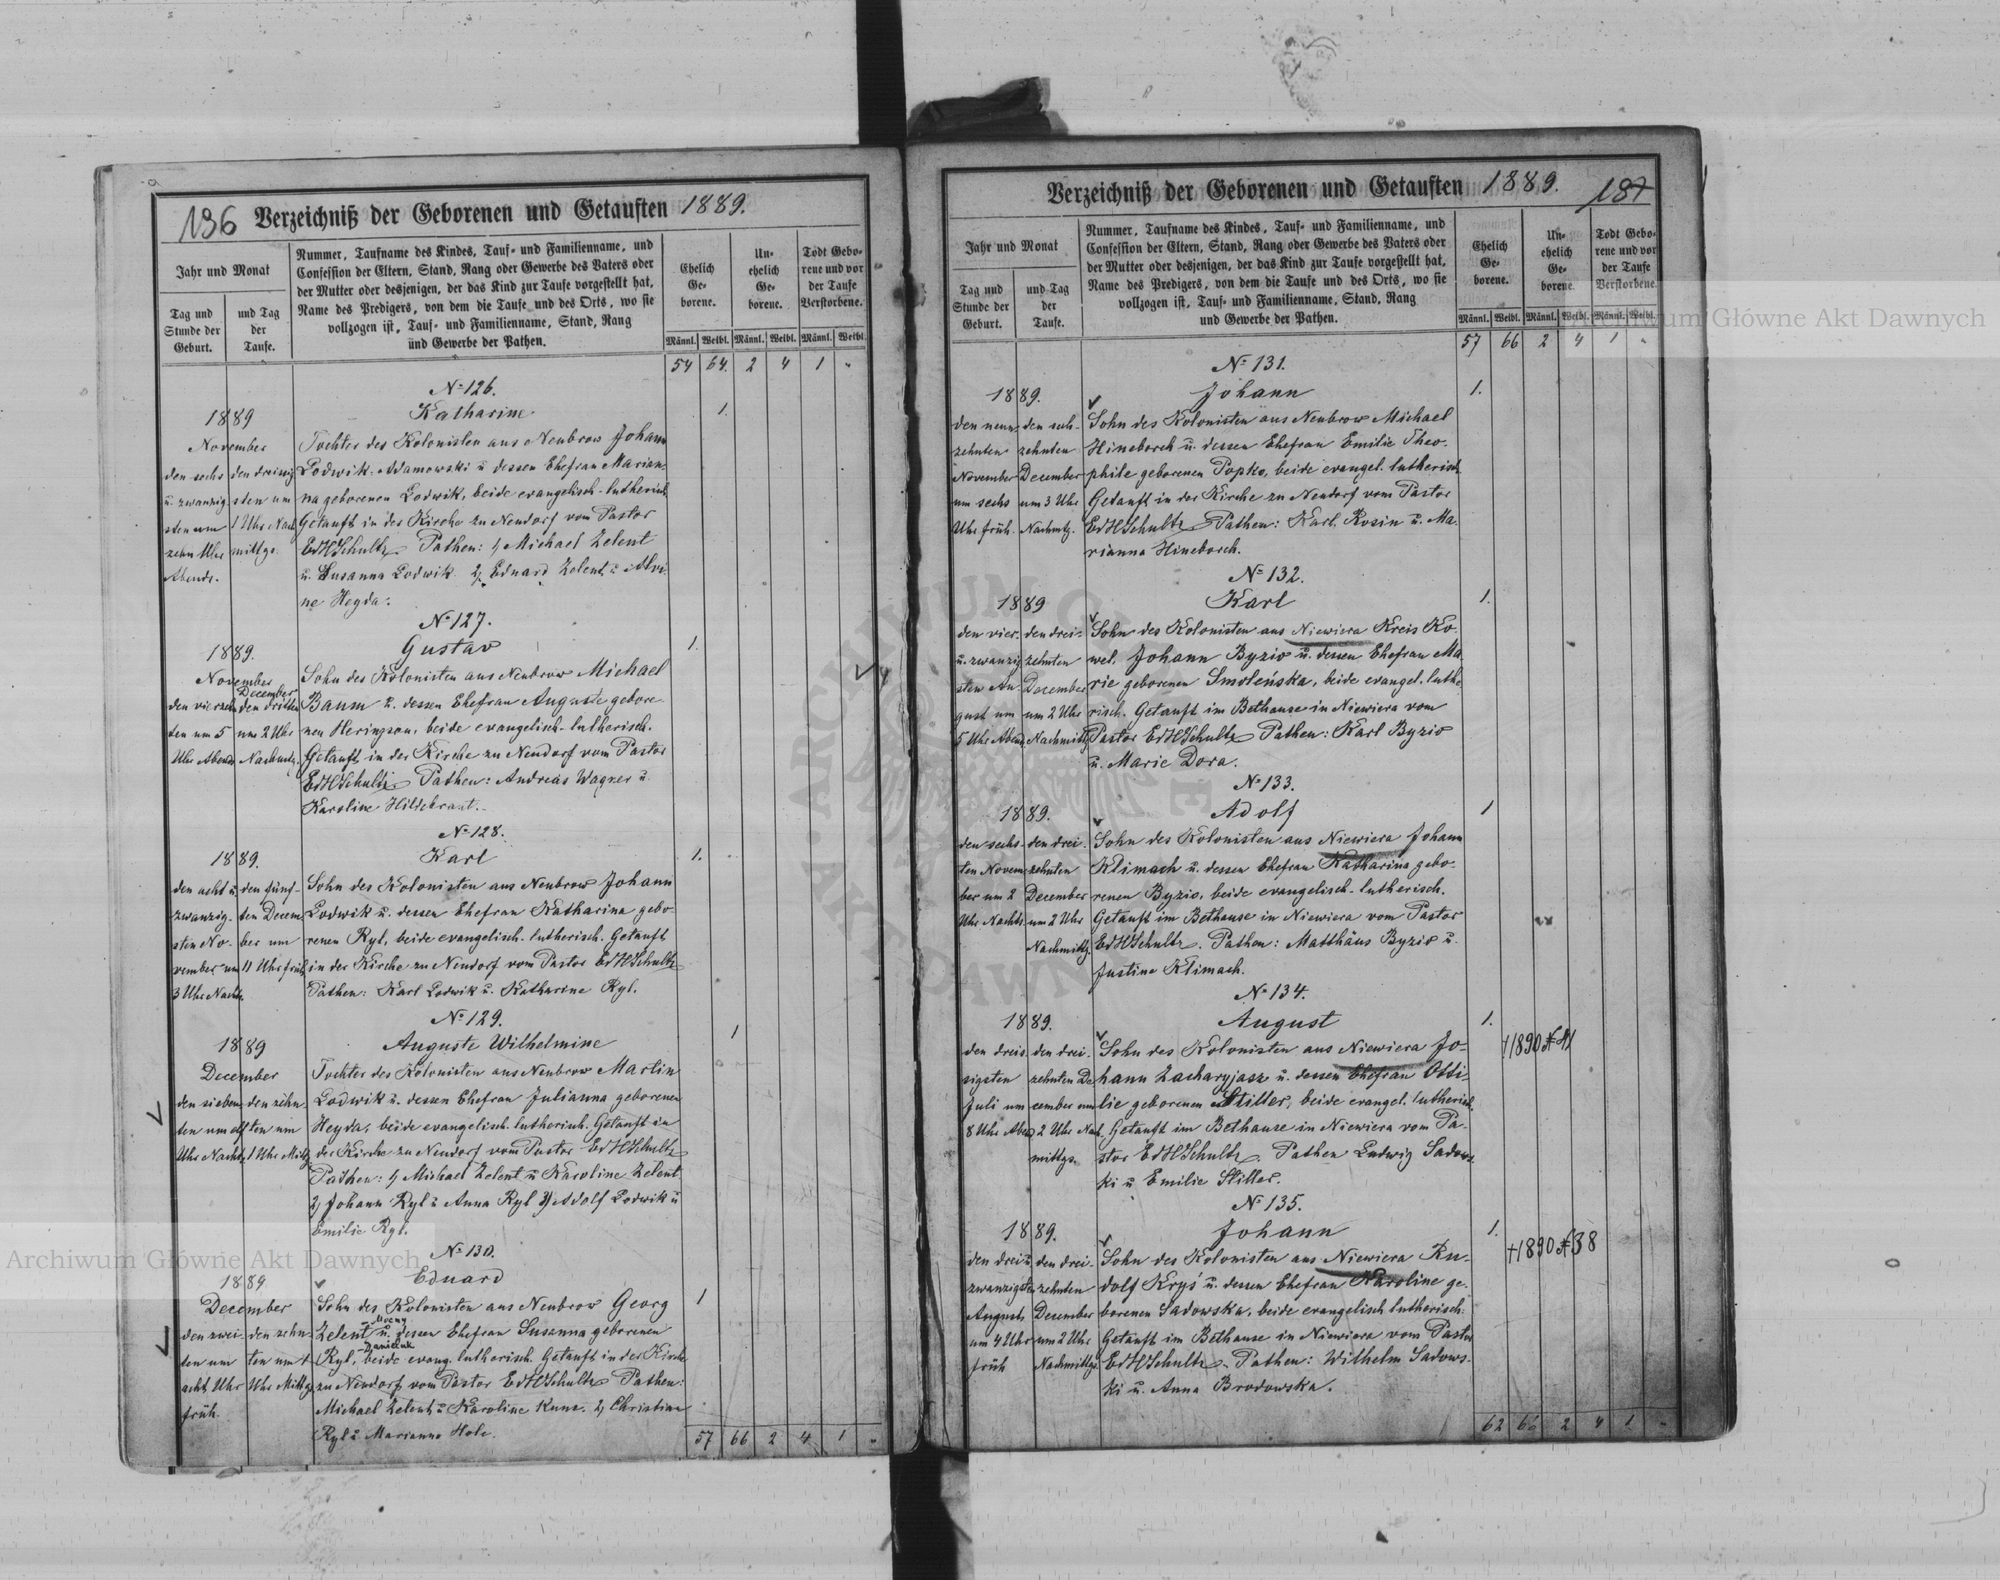 136 Verzeichniß der Geborenen und Getauften 1889.
Jahr und Monat
Tag und Stunde der Geburt.
und Tag der Taufe.
Nummer, Taufname des Kindes, Tauf- und Familienname, und
Confession der Eltern, Stand, Rang oder Gewerbe des Vaters oder
der Mutter oder desjenigen, der das Kind zur Taufe vorgestellt hat,
Name des Predigers, von dem die Taufe und des Orts, wo sie
vollzogen ist, Tauf- und Familienname, Stand, Rang
und Gewerbe der Pathen.
Ehelich Geborene.
Unehelich Geborene.
Todt Geborene und vor der Taufe Verstorbene.
Männl. Weibl. Männl. Weibl. Männl. Weibl.
54 64. 2 4 1 "
№ 126.
1889
November
den sechs
u. zwanzig
sten um
zehn Uhr
Abends.
den dreissig
sten um
1 Uhr Nach
mittgs.
Katharine
1.
Tochter des Kolonisten aus Neubrow Johann
Lodwik-Adamowski u dessen Ehefrau Marian-
na geborenen Lodwik, beide evangelisch-lutherisch
Getauft in der Kirche zu Neudorf vom Pastor
EdHSchultz. Pathen: 1, Michael Zelent
u. Susanna Lodwik 2, Eduard Zelent u Alwi-
ne Heyda.
№ 127.
1889.
November
den vierzehn
ten um 5
Uhr Abends
December
den dritten
um 2 Uhr
Nachmtg.
Gustav
1.
Sohn des Kolonisten aus Neubrow Michael
Baum u. dessen Ehefrau Auguste gebore
nen Heringson, beide evangelisch-lutherisch.
Getauft in der Kirche zu Neudorf vom Pastor
EdHSchultz Pathen: Andreas Wagner u.
Karoline Hildebrant.
№ 128.
1889.
den acht u.
zwanzig-
sten No-
vember um
3 Uhr Nachts
den fünf-
ten Decem
ber um
11 Uhr früh
Karl
1.
Sohn des Kolonisten aus Neubrow Johann
Lodwik u. dessen Ehefrau Katharina gebo-
renen Ryl, beide evangelisch-lutherisch. Getauft
in der Kirche zu Neudorf vom Pastor EdHSchultz
Pathen: Karl Lodwik u. Katharine Ryl.
№ 129.
1889
December
den sieben
ten um elf
Uhr Nachts
den zehn-
ten um
1 Uhr Mittg
Auguste Wilhelmine
1
Tochter des Kolonisten aus Neubrow Martin
Lodwik u. dessen Ehefrau Julianna geborenen
Heyda, beide evangelisch-lutherisch. Getauft in
der Kirche zu Neudorf vom Pastor EdHSchultz
Pathen: 1, Michael Zelent u Karoline Zelent
2, Johann Ryl u Anna Ryl 3, Adolf Lodwik u
Emilie Ryl.
№ 130.
1889
December
den zwei-
ten um
acht Uhr
früh.
den zehn-
ten um 1
Uhr Mittg
Eduard
1
Sohn des Kolonisten aus Neubrow Georg
Zelent u. dessen Ehefrau Susanna geborenen
Danieluk
Ryl, beide evang. lutherisch. Getauft in der Kirche
zu Neudorf vom Pastor EdHSchultz Pathen:
Michael Zelent u Karoline Kunz. 2, Christian
Ryl u Marianna Hole.
57 66 2 4 1 "
Verzeichniß der Geborenen und Getauften 1889. 137
Jahr und Monat
Tag und Stunde der Geburt.
und Tag der Taufe.
Nummer, Taufname des Kindes, Tauf- und Familienname, und
Confession der Eltern, Stand, Rang oder Gewerbe des Vaters oder
der Mutter oder desjenigen, der das Kind zur Taufe vorgestellt hat,
Name des Predigers, von dem die Taufe und des Orts, wo sie
vollzogen ist, Tauf- und Familienname, Stand, Rang
und Gewerbe der Pathen.
Ehelich Geborene.
Unehelich Geborene.
Todt Geborene und vor der Taufe Verstorbene.
Männl. Weibl. Männl. Weibl. Männl. Weibl.
57 66 2 4 1 "
№ 131.
1889.
den neun-
zehnten
November
um sechs
Uhr früh.
den sech-
zehnten
December
um 3 Uhr
Nachmtg.
Johann
1.
Sohn des Kolonisten aus Neubrow Michael
Hineborch u. dessen Ehefrau Emilie Theo-
phile geborenen Popko, beide evangel. lutherisch.
Getauft in der Kirche zu Neudorf vom Pastor
EdHSchultz Pathen: Karl Rosin u. Ma-
rianna Hineborch.
№ 132.
1889
den vier-
u. zwanzig
sten Au-
gust um
5 Uhr Abend
den drei-
zehnten
December
um 2 Uhr
Nachmittg
Karl
1.
Sohn des Kolonisten aus Niewiera Kreis Ko-
wel. Johann Byzio u. dessen Ehefrau Ma-
rie geborenen Smoleńska, beide evangel. luthe-
risch. Getauft im Bethause in Niewiera vom
Pastor EdHSchultz Pathen: Karl Byzio
u. Marie Dora.
№ 133.
1889.
den sechs-
ten Novem
ber um 2
Uhr Nachts.
den drei-
zehnten
December
um 2 Uhr
Nachmittg.
Adolf
1
Sohn des Kolonisten aus Niewiera Johann
Klimach u. dessen Ehefrau Katharina gebo-
renen Byzio, beide evangelisch-lutherisch.
Getauft im Bethause in Niewiera vom Pastor
EdHSchultz. Pathen: Matthäus Byzio u.
Justine Klimach.
№ 134.
1889.
den dreis-
sigsten
Juli um
8 Uhr Abend
den drei-
zehnten De
cember um
2 Uhr Nach
mittgs.
August
1.
†1890 № 41
Sohn des Kolonisten aus Niewiera Jo-
hann Zacharyjasz u. dessen Ehefrau Otti-
lie geborenen Stiller, beide evangel. lutherisch.
Getauft im Bethause in Niewiera vom Pa-
stor EdHSchultz. Pathen Ludwig Sadows-
ki u Emilie Stiller.
№ 135.
1889.
den drei u.
zwanzigsten
August
um 4 Uhr
früh
den drei-
zehnten
December
um 2 Uhr
Nachmittgs.
Johann
1.
†1890 № 38
Sohn des Kolonisten aus Niewiera Ru-
dolf Kryś u. dessen Ehefrau Karoline ge-
borenen Sadowska, beide evangelisch lutherisch.
Getauft im Bethause in Niewiera vom Pastor
EdHSchultz. Pathen: Wilhelm Sadows-
ki u. Anna Brodowska.
62 66 2 4 1 "
Archiwum Główne Akt Dawnych
Archiwum Główne Akt Dawnych